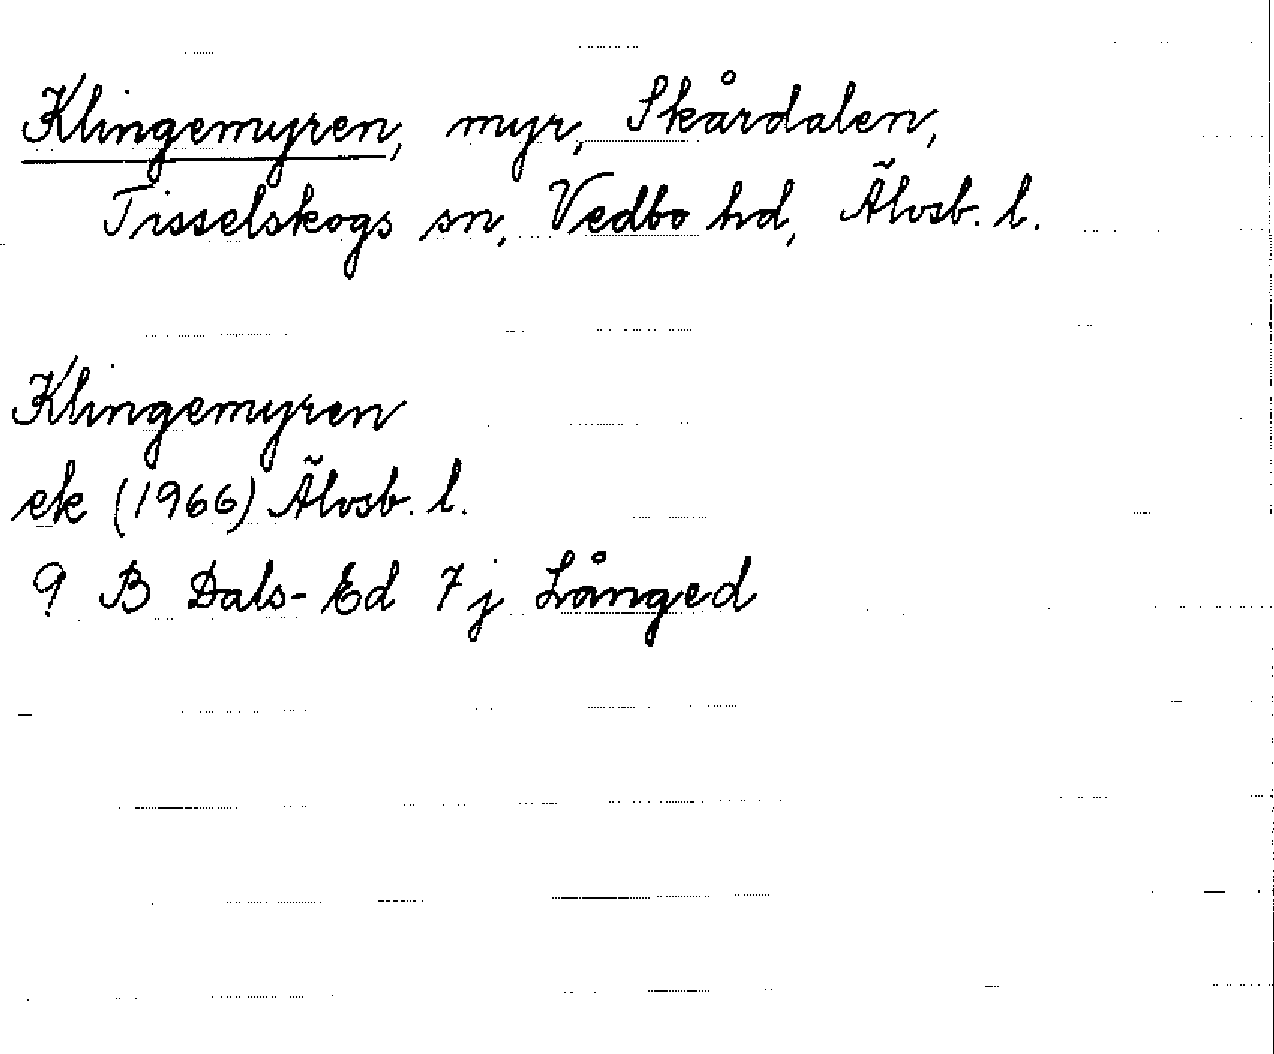 Klingemyren, myr, Skårdalen,
Tisselskogs sn, Vedbo hd, Älvsb. l.
Klingemyren
ek (1966) Älvsb. l.
9 B Dals-Ed 7j Långed